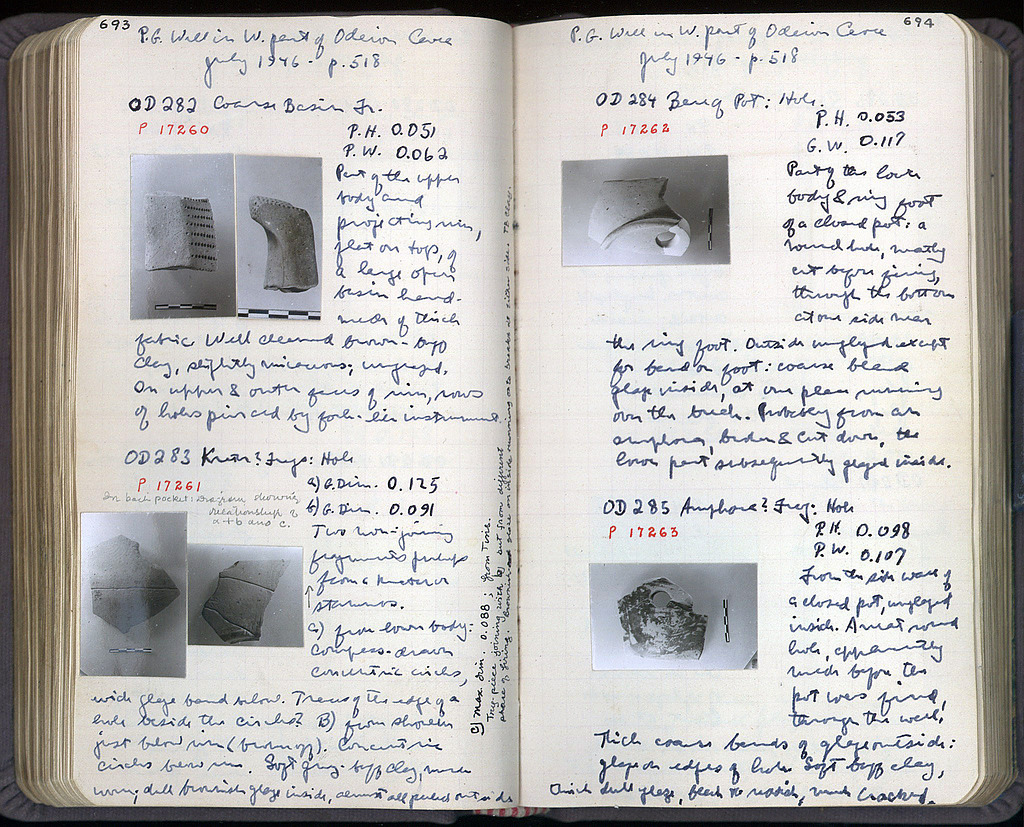 693
P.G. Well in W. part of Odeion Cavea
July 1946 - p. 518
OD 282 Coarse Basin Fr.
P 17260
P.H. 0.051
P.W. 0.062
Part of the upper
body and
projecting rim,
flat on top, of
a large open
basin hand-
made of thick
fabric. Well cleaned brown-buff
clay, slightly micaceous; unglazed.
On upper & outer faces of rim, rows
of holes pierced by fork-like instrument.
OD 283 Krater? Frags: Hole
P 17261
In back pocket: Diagram showing
relationship of
a + b and c.
a) G. Dim. 0.125
b) G. Dim. 0.091
Two non-joining
fragments perhaps
from a krater or
stamnos.
a) from lower body.
Compass-drawn
concentric circles,
with glaze band below. Traces of the edge of a
hole beside the circles? B) from shoulder
just below rim (broken off). Concentric
circles below rim. Soft gray-buff clay, much
worn; dull brownish glaze inside, almost all peeled outside
c) Max. dim. 0.088; from Tins.
Tiny piece joining with b) but from different
phase of firing. Brownish red glaze on inside running onto breaks at either side.
694
P.G. Well in W. part of Odeion Cavea
July 1946 - p. 518
OD 284 Base of Pot: Hole.
P 17262
P.H. 0.053
G.W. 0.117
Part of the lower
body & ring foot
of a closed pot: a
round hole, neatly
cut before firing,
through the bottom
at one side near
the ring foot. Outside unglazed except
for band on foot: coarse black
glaze inside, at one place running
over the break. Probably from an
amphora, broken & cut down, the
lower part subsequently glazed inside.
OD 285 Amphora? Frag: Hole
P 17263
P.H. 0.098
P.W. 0.107
From the side wall of
a closed pot, unglazed
inside. A neat round
hole, apparently
made before the
pot was fired,
through the wall.
Thick coarse bands of glaze outside:
glaze on edges of hole. Soft buff clay,
thick dull glaze, black to reddish, much cracked.